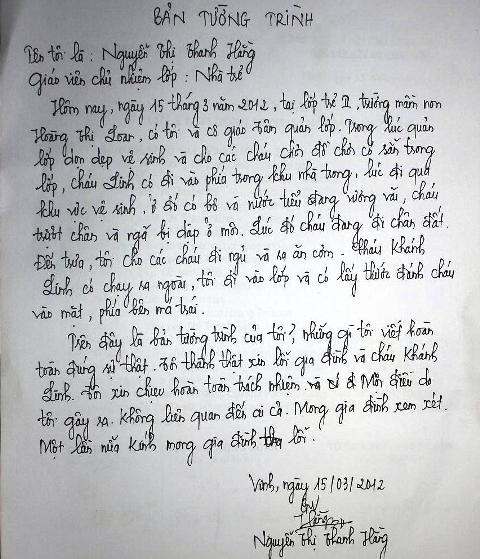 BẢN TƯỜNG TRÌNH
Tên tôi là : Nguyễn Thị Thanh Hằng
Giáo viên chủ nhiệm lớp : Nhà trẻ
Hôm nay, ngày 15 tháng 3 năm 2012, tại lớp trẻ II, trường mầm non
Hoàng Thị Loan, có tôi và cô giáo Tâm quản lớp. Trong lúc quản
lớp dọn dẹp vệ sinh và cho các cháu chơi đồ chơi có sẵn trong
lớp, cháu Linh có đi vào phía trong khu nhà trong, lúc đi qua
khu vực vệ sinh, ở đó có bô và nước tiểu đang vương vãi, cháu
trượt chân và ngã bị dập ở môi. Lúc đó cháu đang đi chân đất.
Đến trưa, tôi cho các cháu đi ngủ và ra ăn cơm. Cháu Khánh
Linh có chạy ra ngoài, tôi đi vào lớp và có lấy thước đánh cháu
vào mặt, phía bên má trái.
Trên đây là bản tường trình của tôi, những gì tôi viết hoàn
toàn đúng sự thật. Tôi thành thật xin lỗi gia đình và cháu Khánh
Linh. Tôi xin chịu hoàn toàn trách nhiệm. Mọi điều do
tôi gây ra. Không liên quan đến ai cả. Mong gia đình xem xét.
Một lần nữa kính mong gia đình tha lỗi.
Vinh, ngày 15/03/2012
Hằng
Nguyễn Thị Thanh Hằng